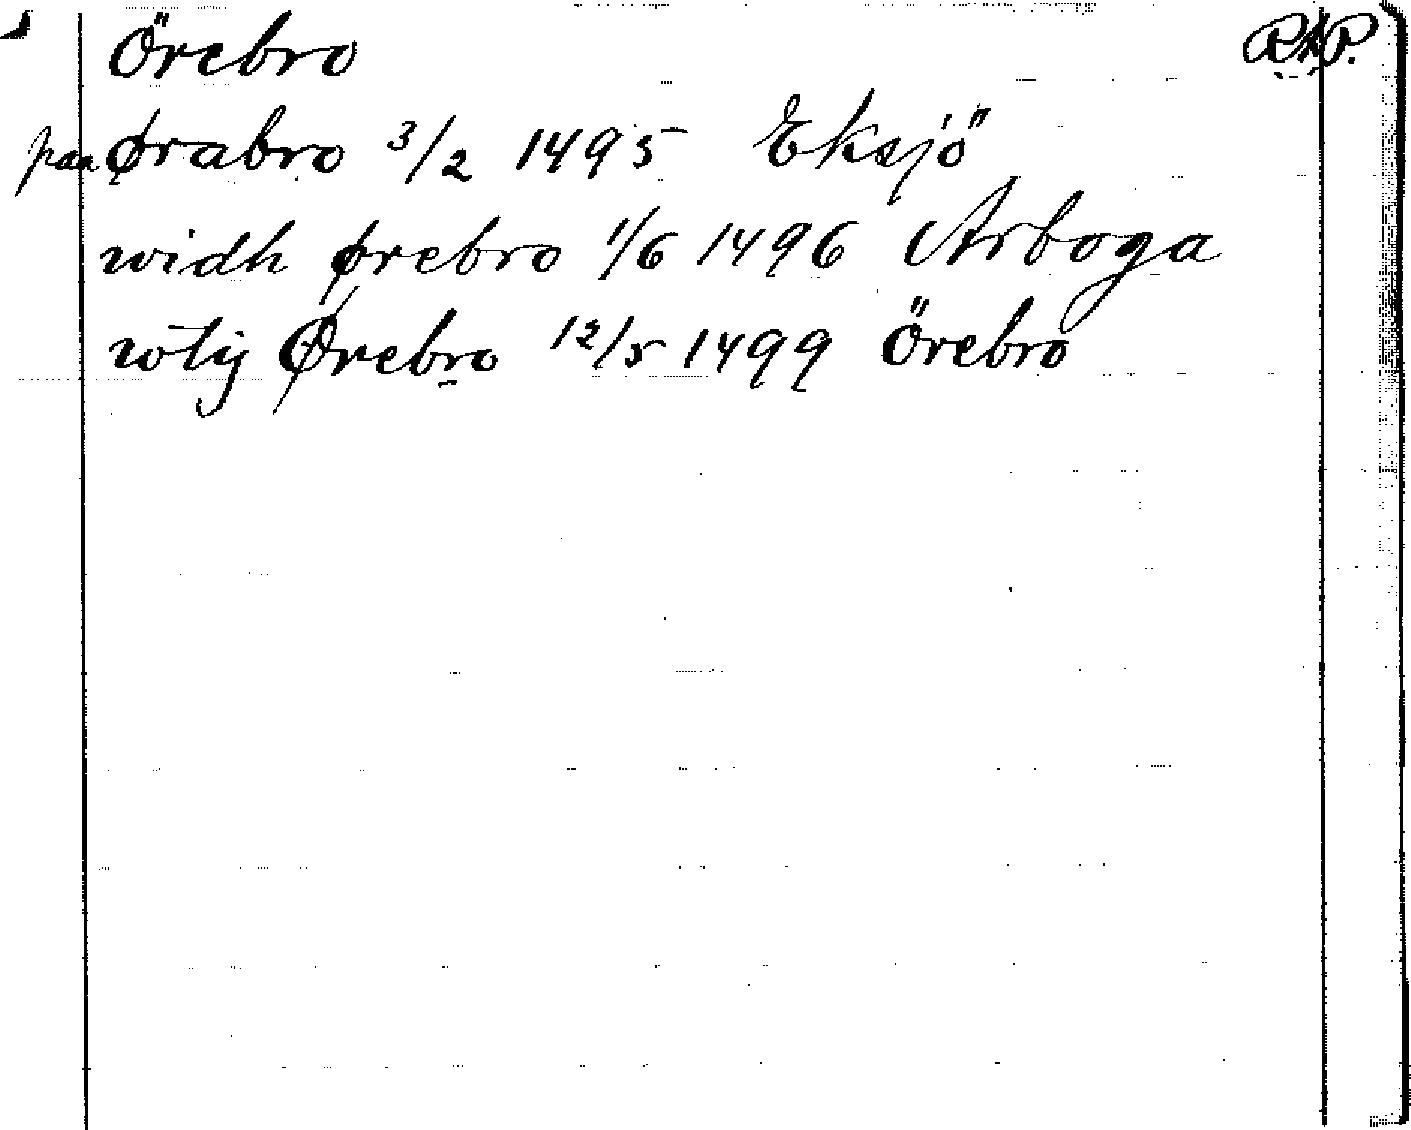 Örebro RAP.
paa Ørabro 3/2 1495 Eksjö
widh ørebro 1/6 1496 Arboga
wtij Ørebro 12/5 1499 Örebro